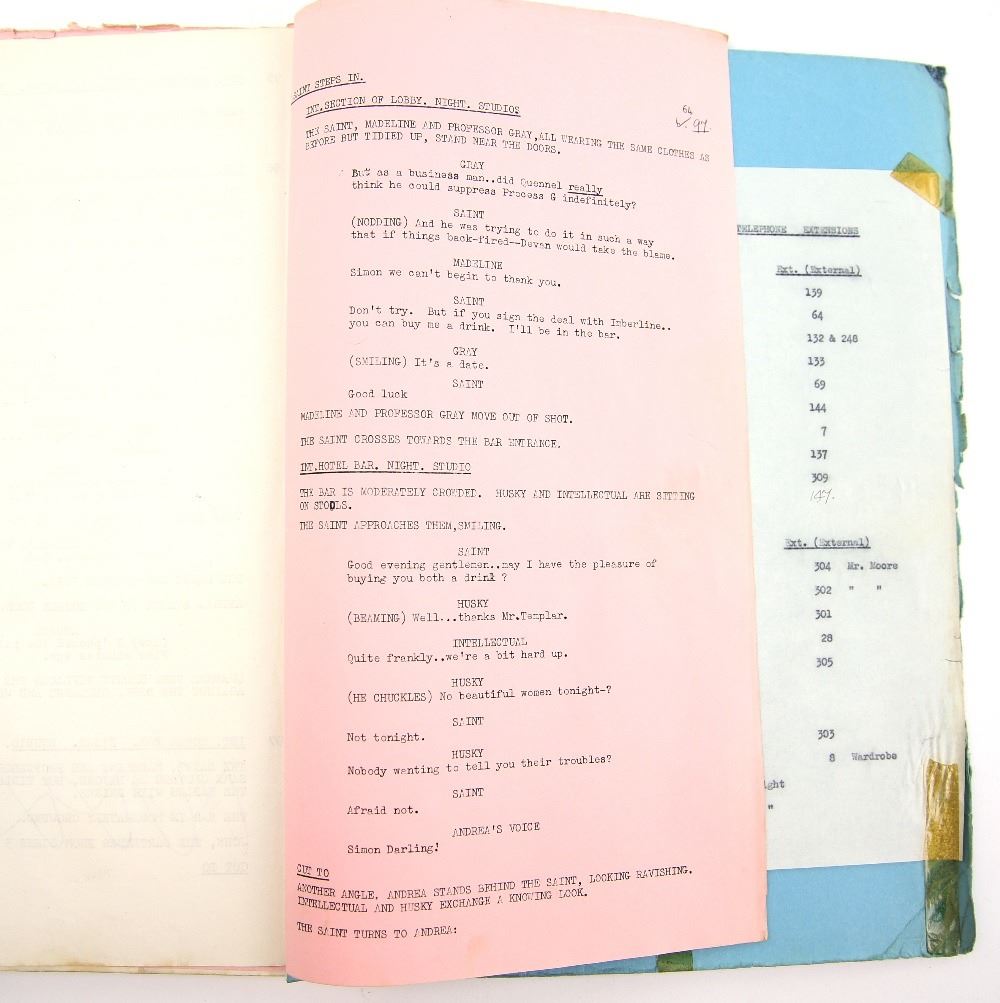 SAINT STEPS IN.
INT. SECTION OF LOBBY. NIGHT. STUDIOS
64
97
THE SAINT, MADELINE AND PROFESSOR GRAY, ALL WEARING THE SAME CLOTHES AS
BEFORE BUT TIDIED UP, STAND NEAR THE DOORS.
GRAY
But as a business man..did Quennel really
think he could suppress Process G indefinitely?
SAINT
(NODDING) And he was trying to do it in such a way
that if things back-fired--Devan would take the blame.
MADELINE
Simon we can't begin to thank you.
SAINT
Don't try. But if you sign the deal with Imberline..
you can buy me a drink. I'll be in the bar.
GRAY
(SMILING) It's a date.
SAINT
Good luck
MADELINE AND PROFESSOR GRAY MOVE OUT OF SHOT.
THE SAINT CROSSES TOWARDS THE BAR ENTRANCE.
INT. HOTEL BAR. NIGHT. STUDIO
THE BAR IS MODERATELY CROWDED. HUSKY AND INTELLECTUAL ARE SITTING
ON STOOLS.
THE SAINT APPROACHES THEM, SMILING.
SAINT
Good evening gentlemen..may I have the pleasure of
buying you both a drink ?
HUSKY
(BEAMING) Well...thanks Mr.Templar.
INTELLECTUAL
Quite frankly..we're a bit hard up.
HUSKY
(HE CHUCKLES) No beautiful women tonight-?
SAINT
Not tonight.
HUSKY
Nobody wanting to tell you their troubles?
SAINT
Afraid not.
ANDREA'S VOICE
Simon Darling!
CUT TO
ANOTHER ANGLE. ANDREA STANDS BEHIND THE SAINT, LOOKING RAVISHING.
INTELLECTUAL AND HUSKY EXCHANGE A KNOWING LOOK.
THE SAINT TURNS TO ANDREA:
TELEPHONE EXTENSIONS
Ext. (External)
139
64
132 & 248
133
69
144
7
137
309
147.
Ext. (External)
304 Mr. Moore
302 " "
301
28
305
303
8 Wardrobe
ight
"